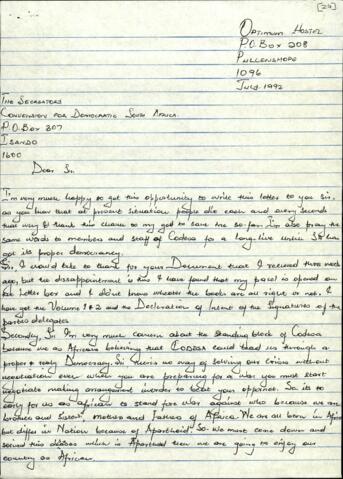 [23]
OPTIMUM HOSTEL
P.O. BOX 208
PULLENSHOPE
1096
JULY 1992
THE SECRETARY
CONVENTION FOR DEMOCRATIC SOUTH AFRICA
P.O. BOX 307
ISANDO
1600
Dear Sir.
I'm very much happy to get this opportunity to write this letter to you sir.
as you know that at present situation people die each and every seconds
that why I thank this chance to my god to save me so far. I'm also pray the
same words to members and staff of Codesa for a long live until SA has
got its proper democracy.
Sir, I would like to thank for your Document that I received three week
ago, but the dissappointment is this I have found that my parcel is opened on
Letter box and I didn't know whether the books are all right or not. I
have get the Volume 1 & 2 and the Declaration of Intent of the Signatures of the
parties delegates.
Secondly, Sir I'm very much concern about the standing block of Codesa
because we as Africans believing that CODESA could take us through a
proper ready Democracy. Sir there is no way of solving our crisis without
negotiation even when you are preparing for a war you must start
negotiate making arrangement inorder to beat your opponet. So its to
early for us as african to stand for war against who because we are
brothers and Sisters, mothers and Fathers of Africa. We are all born in Africa
but differ in Nation because of Apartheid. So. We must come down and
solved this disease which is Apartheid then we are going to enjoy our
country as African.